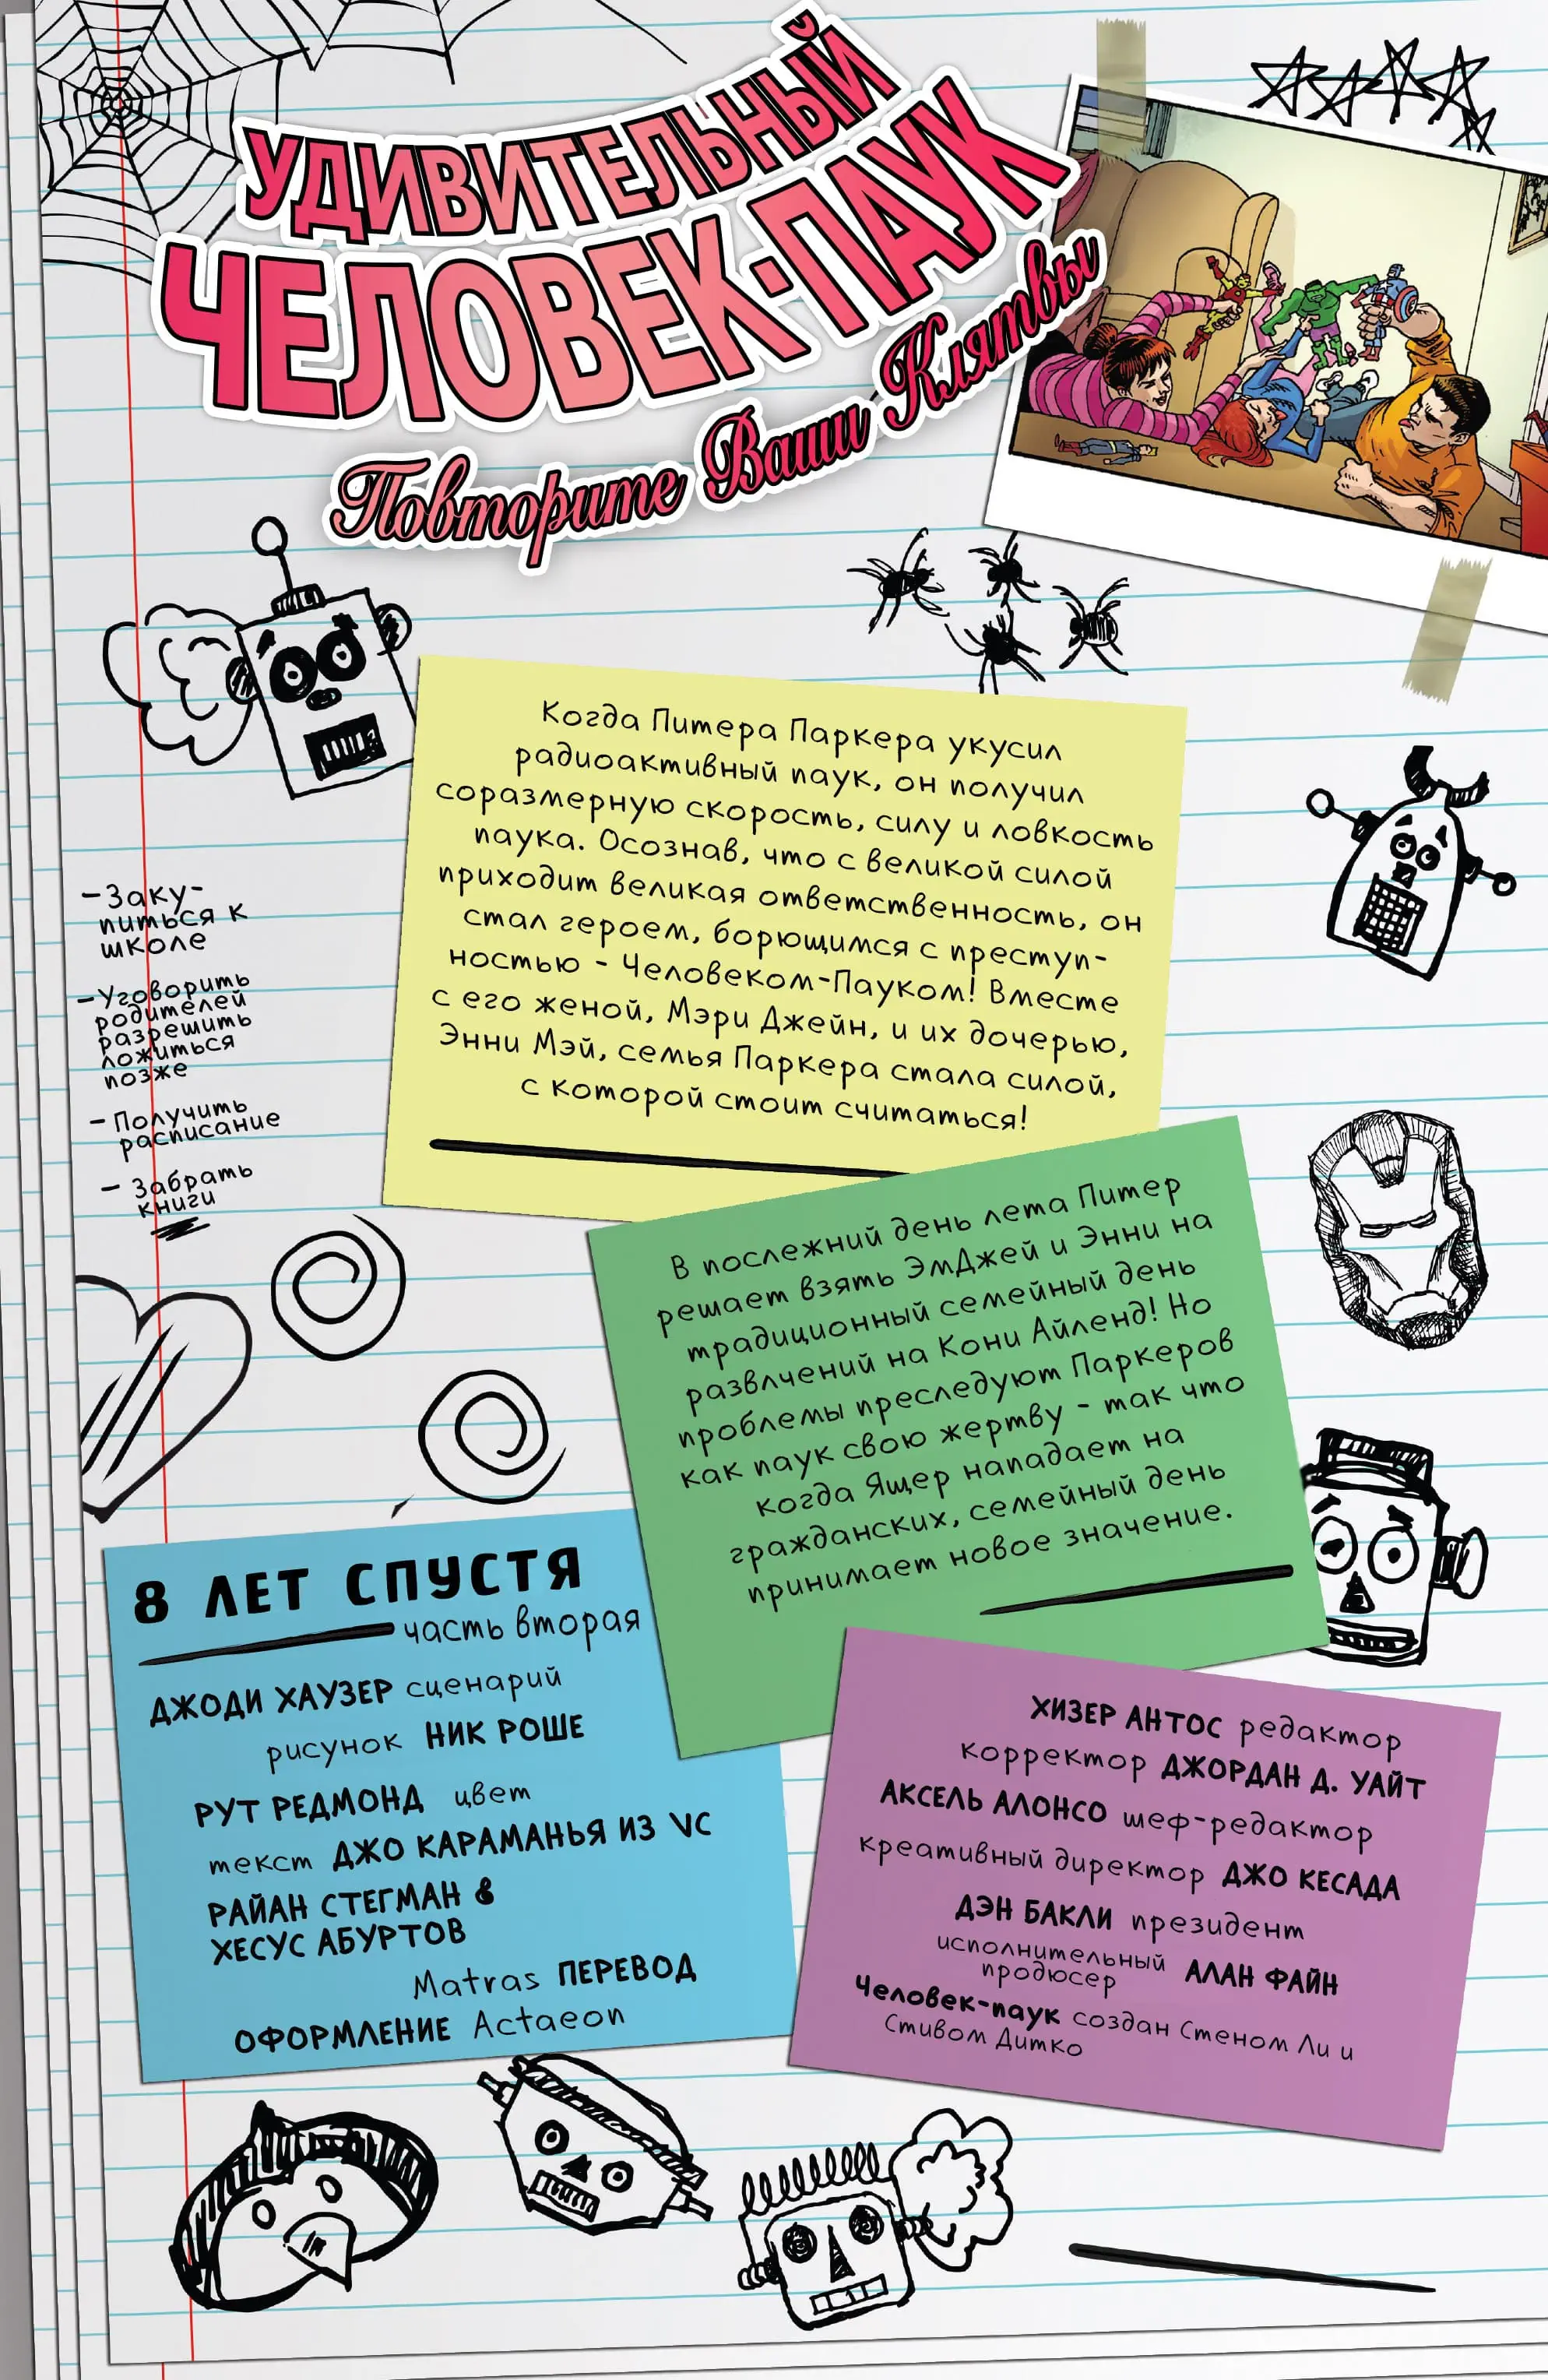 УДИВИТЕЛЬНЫЙ
ЧЕЛОВЕК-ПАУК
Повторите Ваши Клятвы
Когда Питера Паркера укусил
радиоактивный паук, он получил
соразмерную скорость, силу и ловкость
паука. Осознав, что с великой силой
приходит великая ответственность, он
стал героем, борющимся с преступ-
ностью - Человеком-Пауком! Вместе
с его женой, Мэри Джейн, и их дочерью,
Энни Мэй, семья Паркера стала силой,
с которой стоит считаться!
-Заку-
питься к
школе
-Уговорить
родителей
разрешить
ложиться
позже
-Получить
расписание
- Забрать
книги
В послежний день лета Питер
решает взять ЭмДжей и Энни на
традиционный семейный день
развлчений на Кони Айленд! Но
проблемы преследуют Паркеров
как паук свою жертву - так что
когда Ящер нападает на
гражданских, семейный день
принимает новое значение.
8 ЛЕТ СПУСТЯ
часть вторая
ДЖОДИ ХАУЗЕР сценарий
рисунок НИК РОШЕ
РУТ РЕДМОНД цвет
текст ДЖО КАРАМАНЬЯ ИЗ VC
РАЙАН СТЕГМАН &
ХЕСУС АБУРТОВ
Matras ПЕРЕВОД
ОФОРМЛЕНИЕ Actaeon
ХИЗЕР АНТОС редактор
корректор ДЖОРДАН Д. УАЙТ
АКСЕЛЬ АЛОНСО шеф-редактор
креативный директор ДЖО КЕСАДА
ДЭН БАКЛИ президент
исполнительный
продюсер АЛАН ФАЙН
Человек-паук создан Стеном Ли и
Стивом Дитко